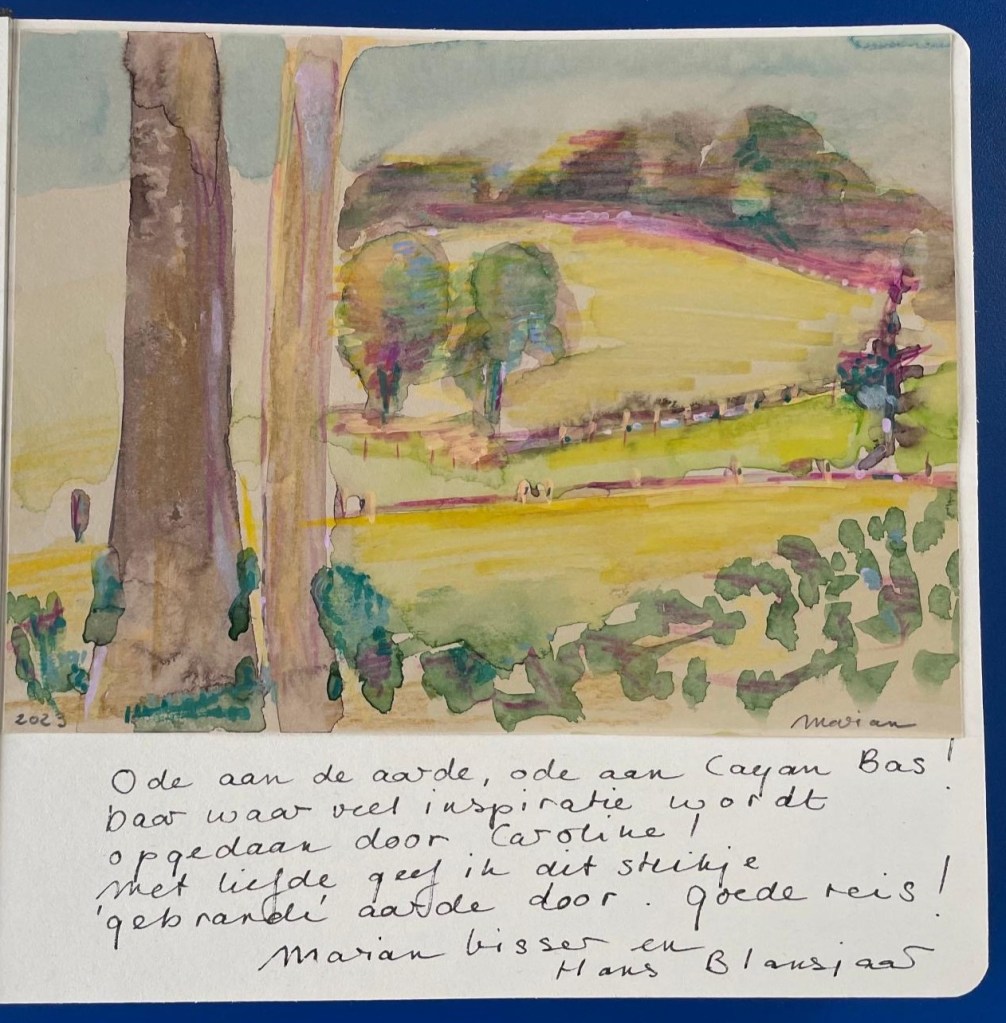 2023
Marian
Ode aan de aarde, ode aan Cayan Bas!
Daar waar veel inspiratie wordt
opgedaan door Caroline!
Met liefde geef ik dit stukje
'gebrande' aarde door. Goede reis!
Marian Visser en
Hans Blansjaar